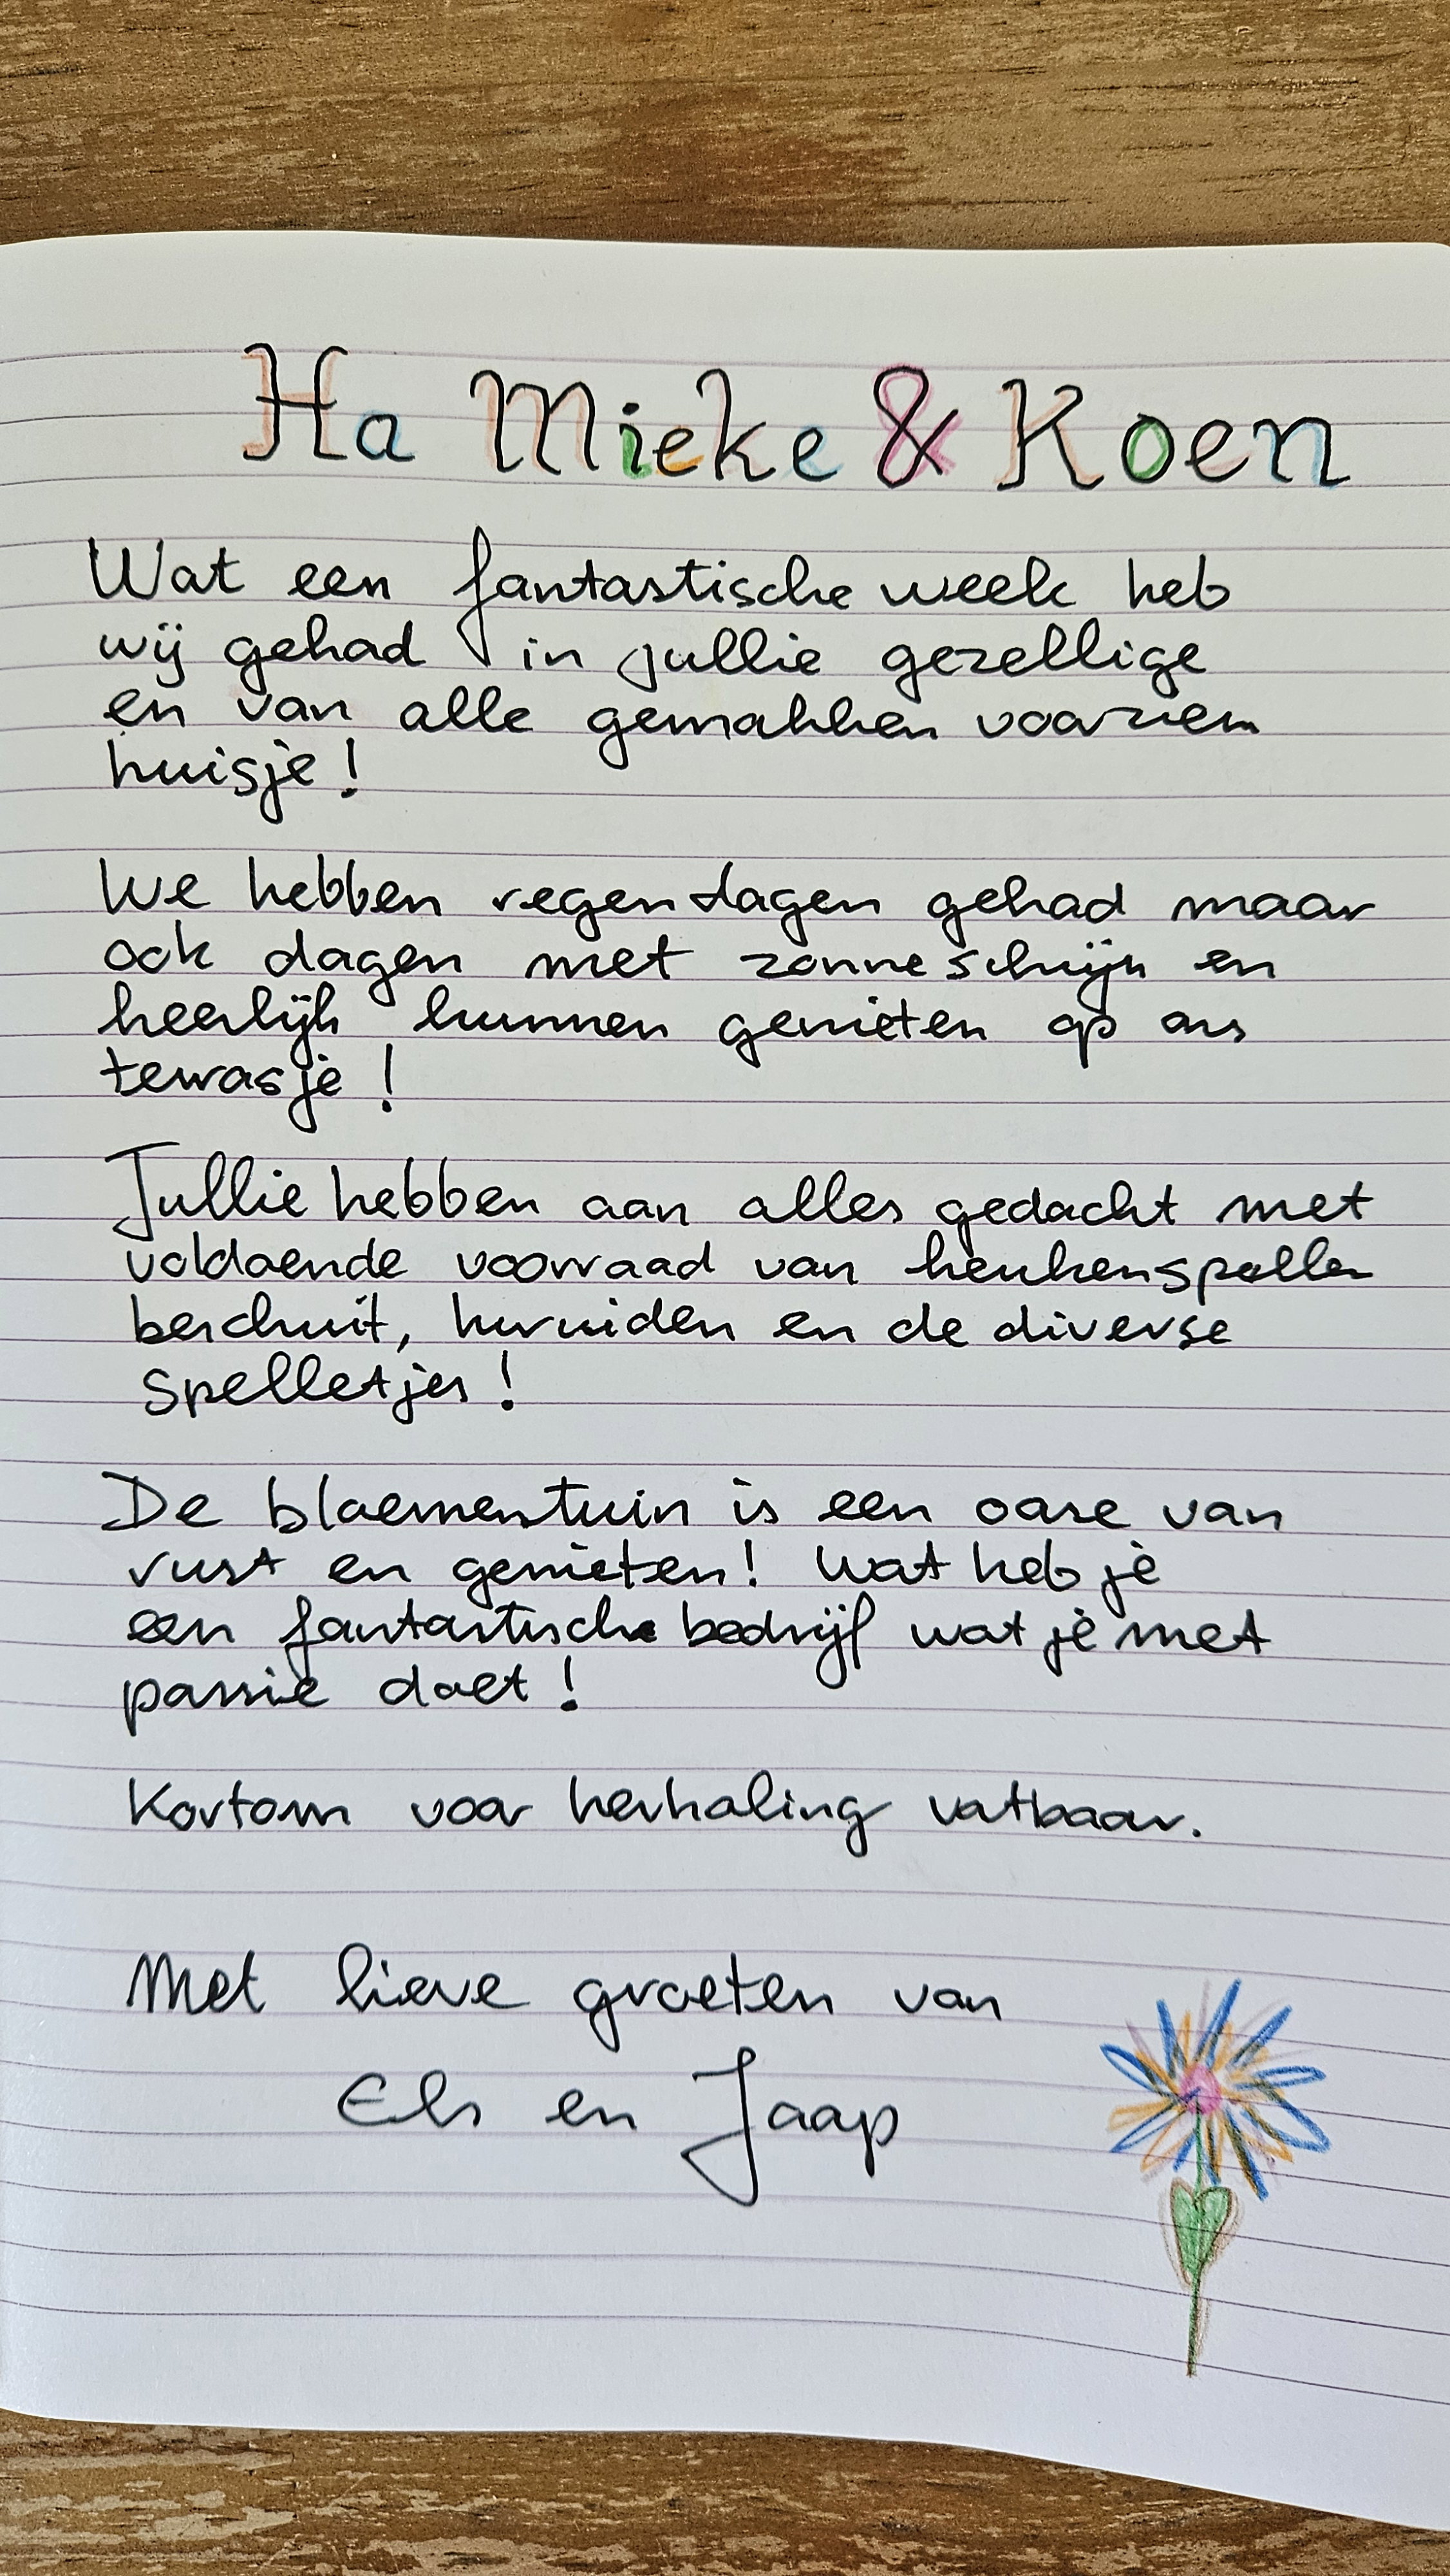 Ha Mieke & Koen
Wat een fantastische week heb
wij gehad in jullie gezellige
en van alle gemakken voorzien
huisje!
We hebben regendagen gehad maar
ook dagen met zonneschijn en
heerlijk kunnen genieten op ons
terrasje!
Jullie hebben aan alles gedacht met
voldoende voorraad van keukenspullen
beschuit, kruiden en de diverse
spelletjes!
De bloemementuin is een oase van
rust en genieten! Wat heb je
een fantastische bedrijf wat je met
passie doet!
Kortom voor herhaling vatbaar.
Met lieve groeten van
Els en Jaap